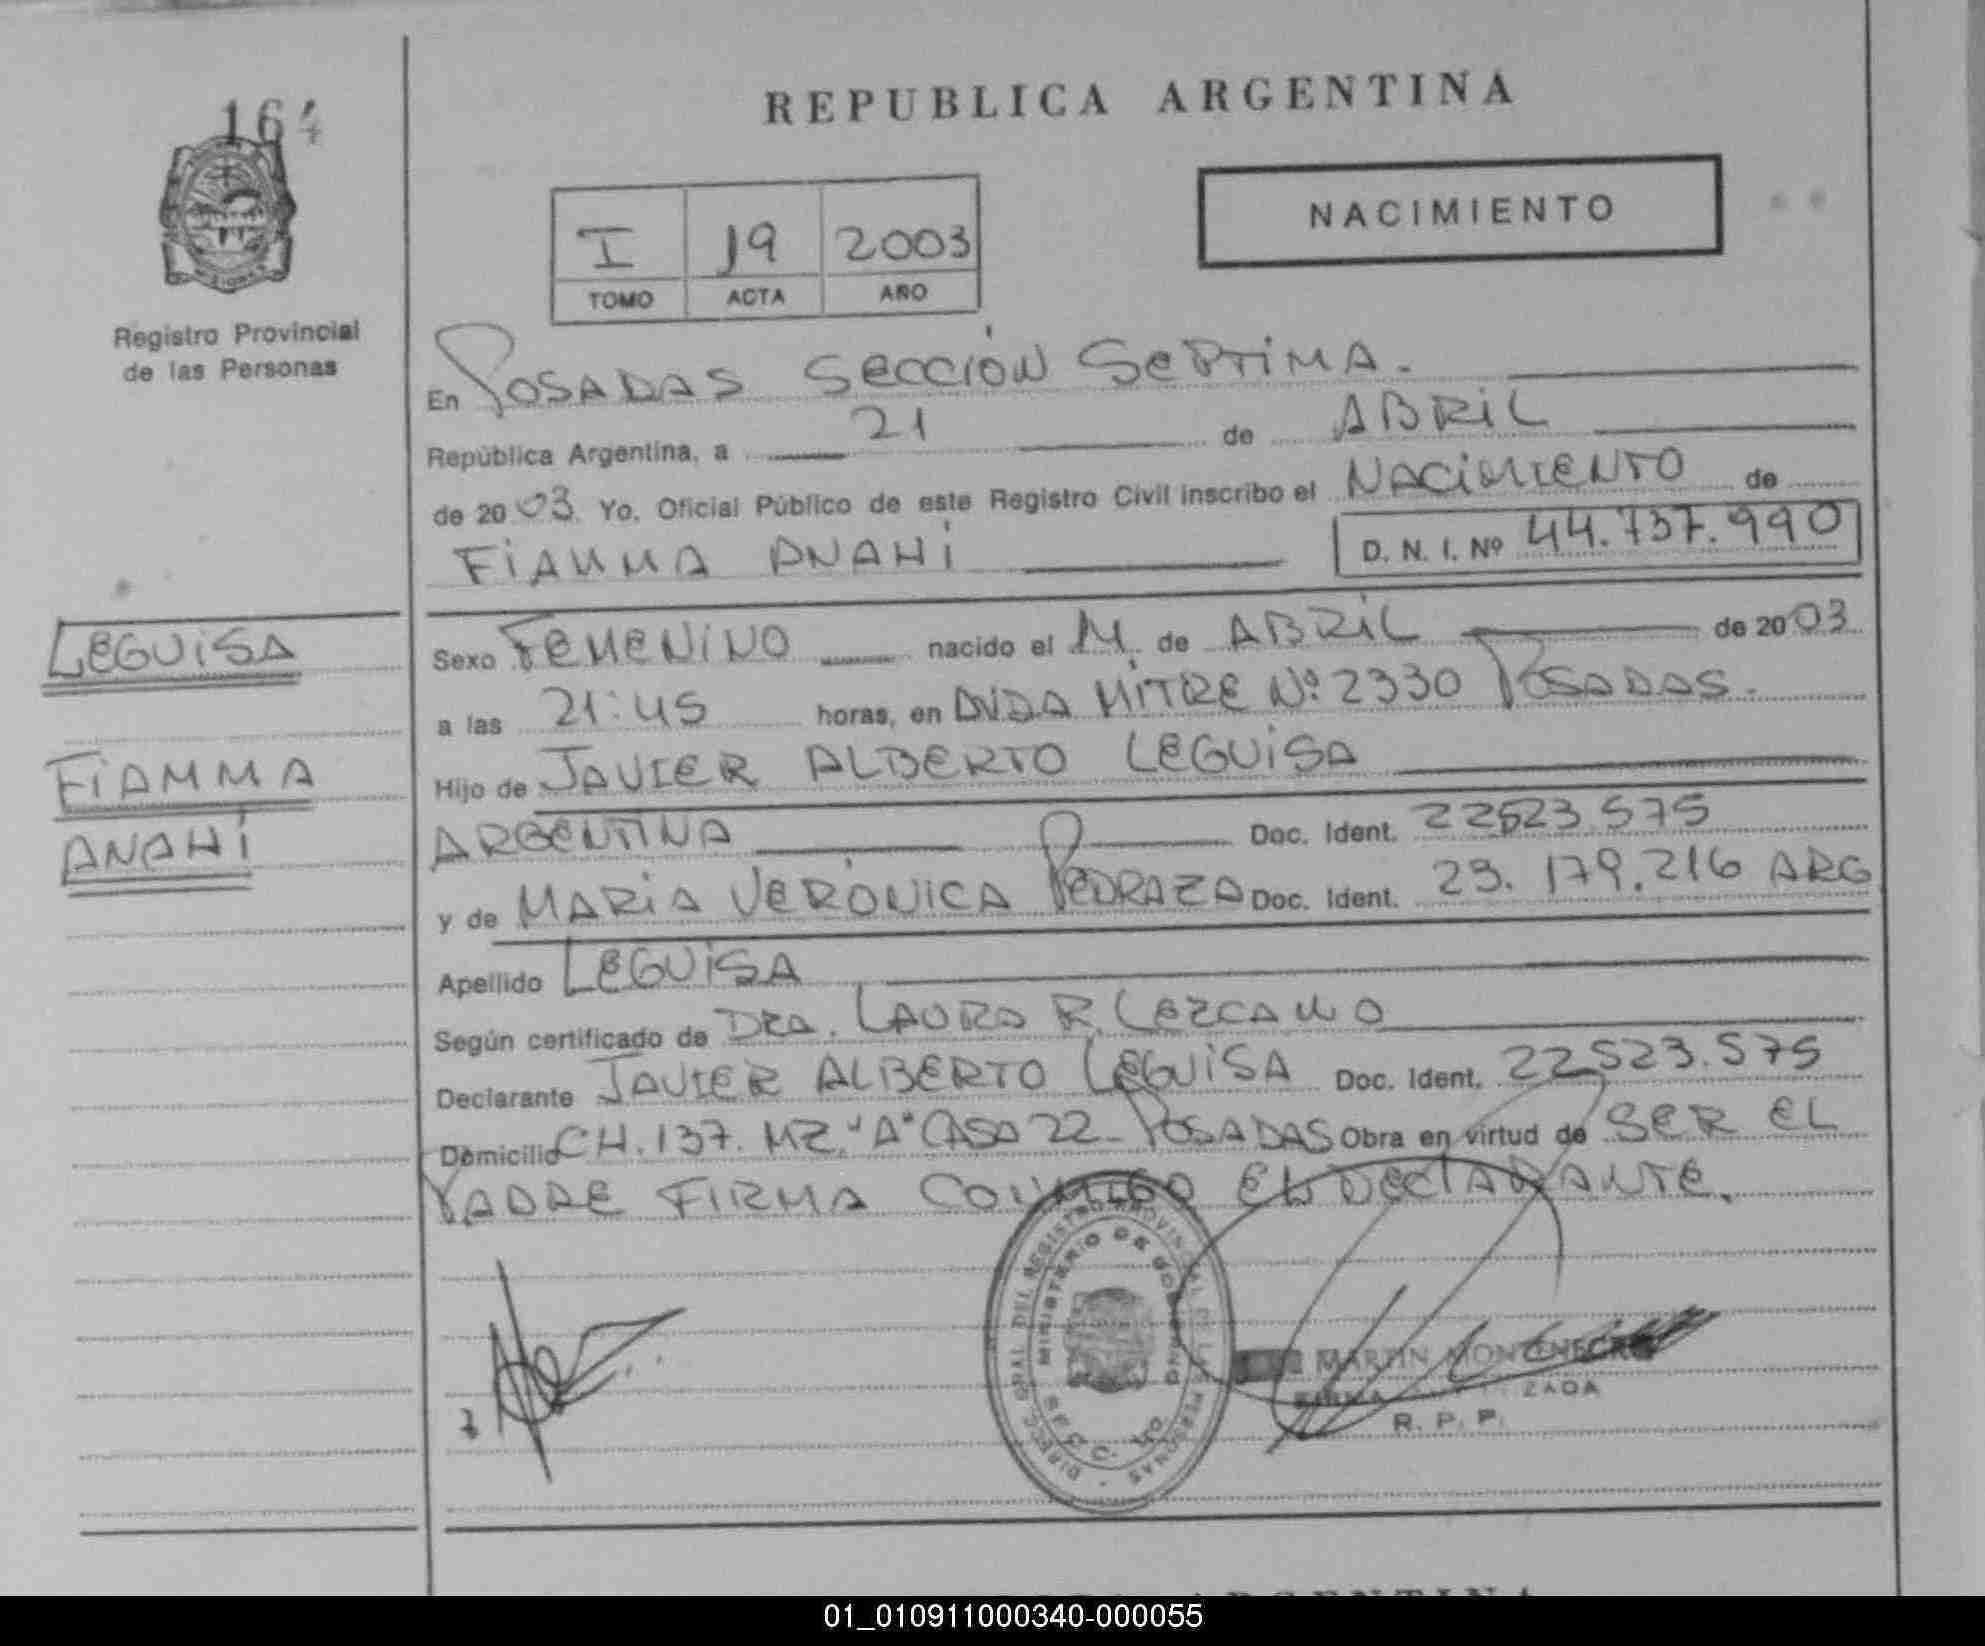 164
REPUBLICA ARGENTINA
NACIMIENTO
I 19 2003
TOMO ACTA AÑO
Registro Provincial
de las Personas
En POSADAS SECCIÓN SEPTIMA.
República Argentina, a 21 de ABRIL
de 2003. Yo, Oficial Público de este Registro Civil inscribo el NACIMIENTO de
FIAMMA ANAHÍ D. N. I. Nº 44.737.990
LEGUISA
FIAMMA
ANAHÍ
Sexo FEMENINO nacido el 11 de ABRIL de 2003
a las 21:45 horas, en AVDA MITRE Nº 2330 POSADAS.
Hijo de JAVIER ALBERTO LEGUISA
ARGENTINA Doc. Ident. 22523.575
y de MARIA VERÓNICA PEDRAZA Doc. Ident. 23.179.216 ARG
Apellido LEGUISA
Según certificado de DRA. LAURA R. LEZCANO
Declarante JAVIER ALBERTO LEGUISA Doc. Ident. 22523.575
Domicilio CH. 137. MZ. "A" CASA 22 - POSADAS Obra en virtud de SER EL
PADRE FIRMA CONMIGO EL DECLARANTE.
DIRECC. GRAL. DEL REGISTRO PROVINCIAL DE LAS PERSONAS
MINISTERIO DE GOBIERNO
MARTIN MONTENEGRO
FIRMA AUTORIZADA
R. P. P.
01_010911000340-000055